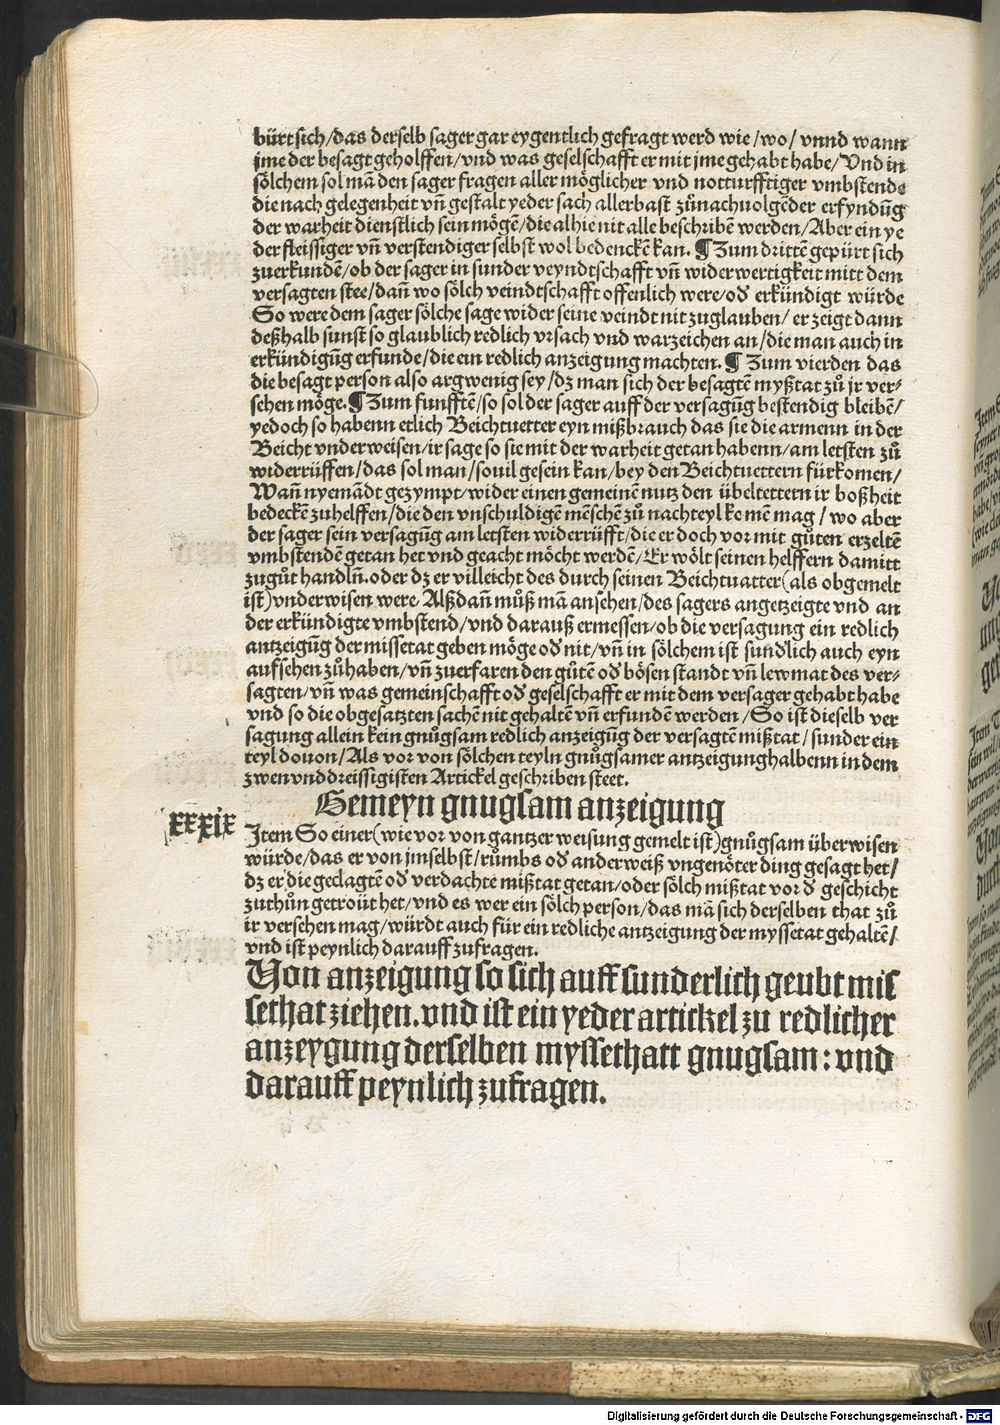 bürt sich/das derselb sager gar eygentlich gefragt werd wie/wo/ vnnd wann
jme der besagt geholffen/vnd was geselschafft er mit jme gehabt habe/Vnd in
sölchem sol mā den sager fragen aller möglicher vnd notturfftiger vmbstende
die nach gelegenheit vn̄ gestalt yeder sach allerbast zůnachuolgēder erfyndūg
der warheit dienstlich sein mögē/die alhie nit alle beschribē werden/Aber ein ye
der fleissiger vn̄ verstendiger selbst wol bedenckē kan. ¶ Zum drittē gepürt sich
zuerkundē/ob der sager in sunder veyndtschafft vn̄ widerwertigkeit mitt dem
versagten stee/dan̄ wo sölch veindtschafft offenlich were/od erkündigt würde
So were dem sager sölche sage wider seine veindt nit zuglauben/ er zeigt dann
deßhalb sunst so glaublich redlich vrsach vnd warzeichen an/die man auch in
erkündigūg erfunde/die ein redlich anzeigung machten. ¶ Zum vierden das
die besagt person also argwenig sey/dz man sich der besagtē myßtat zů jr ver⸗
sehen möge. ¶ Zum funfftē/so sol der sager auff der versagūg bestendig bleibē/
yedoch so habenn etlich Beichtuetter eyn mißbrauch das sie die armenn in der
Beicht vnderweisen/ir sage so sie mit der warheit getan habenn/am letsten zů
widerrüffen/das sol man/souil gesein kan/bey den Beichtuettern fürkomen/
Wan̄ nyemādt gezympt/wider einen gemeinē nutz den übeltettern ir boßheit
bedeckē zuhelffen/die den vnschuldigē mēschē zů nachteyl komē mag/ wo aber
der sager sein versagūg am letsten widerrüfft/die er doch vor mit gůten erzeltē
vmbstendē getan het vnd geacht möcht werdē/Er wölt seinen helffern damitt
zugůt handln̄. oder dz er villeicht des durch seinen Beichtuatter(als obgemelt
ist)vnderwisen were. Alßdan̄ můß mā ansehen/des sagers angetzeigte vnd an
der erkündigte vmbstend/vnd darauß ermessen/ob die versagung ein redlich
antzeigūg der missetat geben möge od nit/vn̄ in sölchem ist sundlich auch eyn
aufsehen zůhaben/vn̄ zuerfaren den gůtē od bösen standt vn̄ lewmat des ver⸗
sagten/vn̄ was gemeinschafft od geselschafft er mit dem versager gehabt habe
vnd so die obgesatzten sachē nit gehaltē vn̄ erfundē werden/So ist dieselb ver
sagung allein kein gnůgsam redlich anzeigūg der versagtē mißtat/sunder ein
teyl douon/Als vor von sölchen teyln gnůgsamer antzeigunghalbenn in dem
zwenvnddreissigisten Artickel geschriben steet.
Gemeyn gnugsam anzeigung
xxxix
Jtem So einer(wie vor von gantzer weisung gemelt ist)gnůgsam überwisen
würde/das er von jmselbst/růmbs od anderweiß vngenöter ding gesagt het/
dz er die geclagtē od verdachte mißtat getan/oder sölch mißtat vor d geschicht
zuthůn getroüt het/vnd es wer ein sölch person/das mā sich derselben that zů
ir versehen mag/würdt auch für ein redliche antzeigung der myssetat gehaltē/
vnd ist peynlich darauff zufragen.
Von anzeigung so sich auff sunderlich geubt mis
sethat ziehen. vnd ist ein yeder artickel zu redlicher
anzeygung derselben myssethatt gnugsam: vnd
darauff peynlich zufragen.
Digitalisierung gefördert durch die Deutsche Forschungsgemeinschaft - DFG